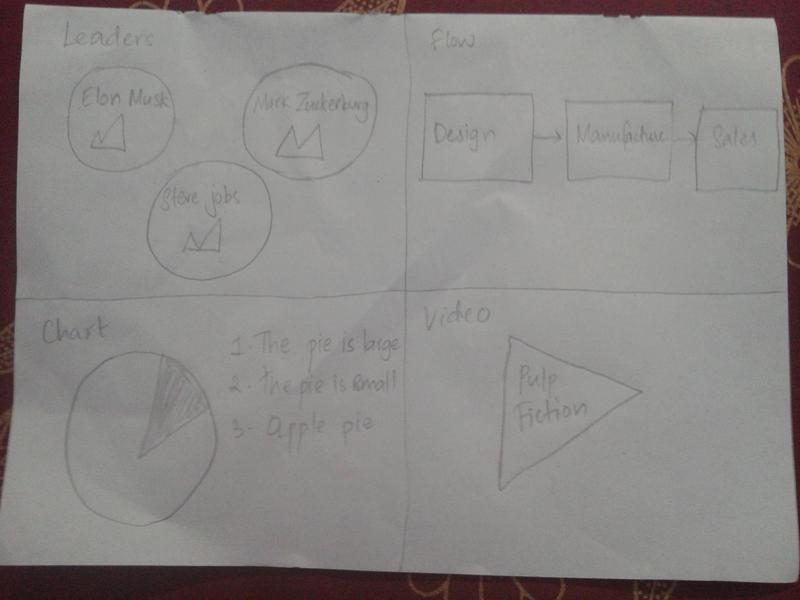 Leaders
Elon Musk
Mark Zuckerburg
Steve jobs
Flow
Design
Manufacture
Sales
Chart
1. The pie is large
2. the pie is small
3- Apple pie
Video
Pulp
Fiction